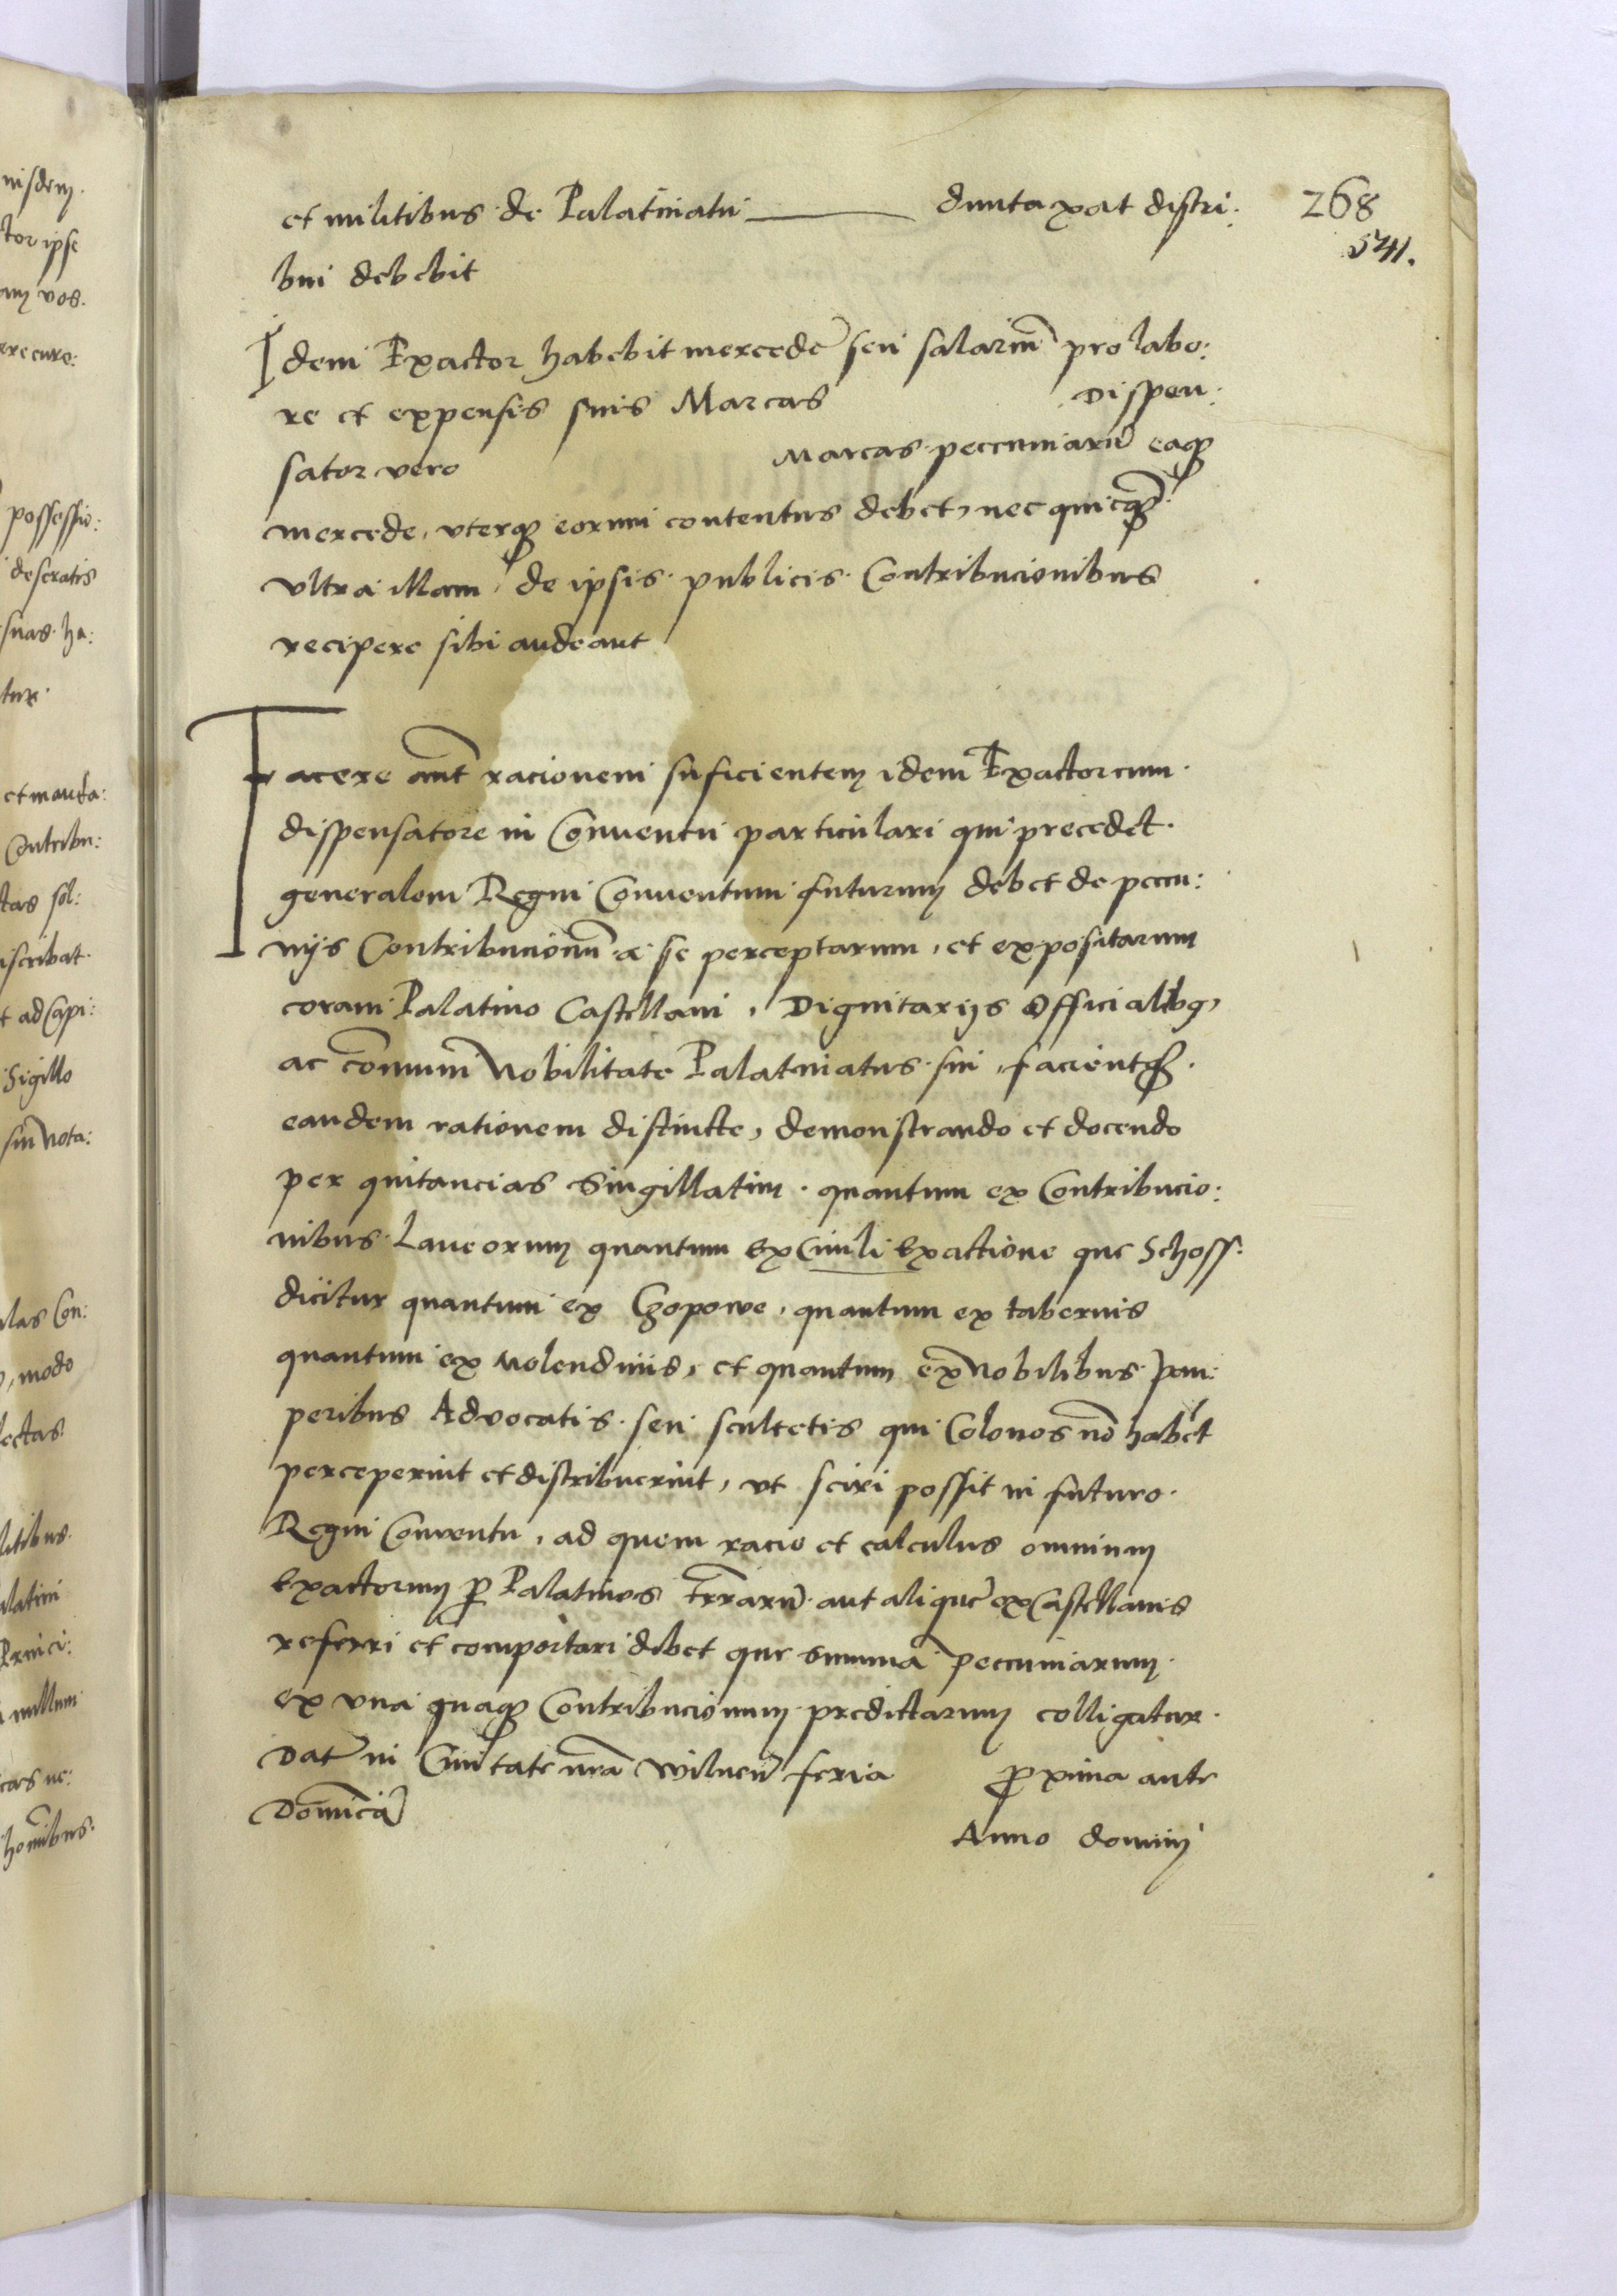 et militibus de Palatinatu ——— duntaxat distri:
268
541.
bui debebit
Idem Exactor habebit mercedē seu salariū pro labo:
re et expensis suis Marcas Dispen:
sator vero Marcas peccuniarū eaqȝ
mercede, vterqȝ eorum contentus debet, nec quicqȝ
vltra illam, de ipsis publicis Contribucionibus
recipere sibi audeant
Facere aut̄ racionem suficientem idem Exactor cum
dispensatore in Conuentu particulari qui precedet
generalem Regni Conuentum futurum debet de peccu:
nijs Contribucionū a se perceptarum, et expositarum
coram Palatino Castellani, Dignitarijs Officialibȝ,
ac cōmuni Nobilitate Palatinatus sui, facientqȝ
eandem rationem distincte, demonstrando et docendo
per quitancias Singillatim. quantum ex Contribucio:
nibus Laneorum quantum ex Ciuili exactione que Schoss:
dicitur quantum ex Czopowe, quantum ex tabernis
quantum ex Molendinis, et quantum ex Nobilibus pau:
peribus Advocatis seu scultetis qui Colonos nō habēt
perceperint et distribuerint, vt sciri possit in futuro
Regni Conventu, ad quem racio et calculus omnium
exactorum p̄ Palatinos terrarū aut aliquē ex Castellanis
referri et comportari debet que summa peccuniarum
ex vna quaqȝ Contribucionum predictarum colligatur.
Dat̄ in Ciuitate nr̄a Wilnen̄ feria proxima ante
Dominicā
Anno domini